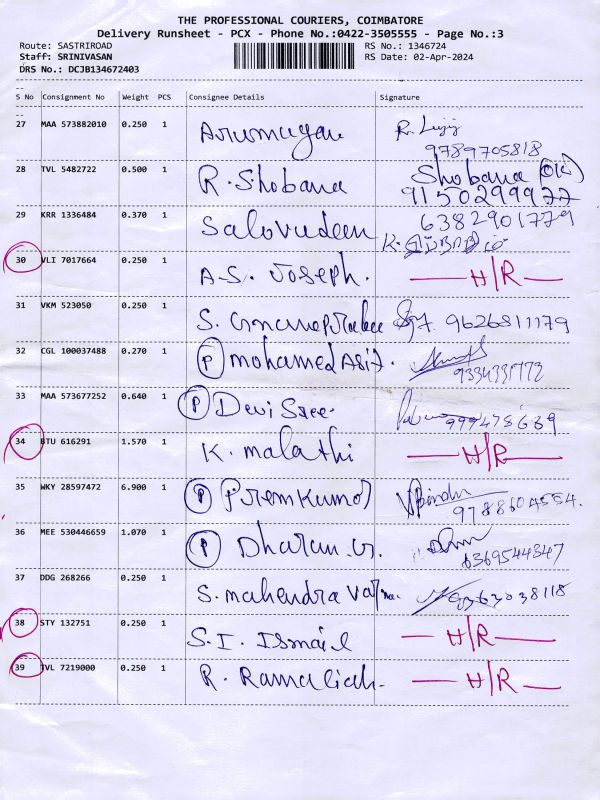 THE PROFESSIONAL COURIERS, COIMBATORE
Delivery Runsheet - PCX - Phone No.:0422-3505555 - Page No.:3
Route: SASTRIROAD
RS No.: 1346724
Staff: SRINIVASAN
RS Date: 02-Apr-2024
DRS No.: DCJB134672403
S No Consignment No Weight PCS Consignee Details Signature
27 MAA 573882010 0.250 1 Arumugam R.
9789705818
28 TVL 5482722 0.500 1 R. Shobana Shobana
9150299977
29 KRR 1336484 0.370 1 Salovudeen 6382901779
K.
30 VLI 7017664 0.250 1 A.S. Joseph. H/R
31 VKM 523050 0.250 1 S. 9626811179
32 CGL 100037488 0.270 1 P mohamed Asif.
33 MAA 573677252 0.640 1 P Devi Sree.
34 BTU 616291 1.570 1 K. malathi H/R
35 WKY 28597472 6.900 1 P Premkumar
9788604554.
36 MEE 530446659 1.070 1 P Dharan.G.
6369544347
37 DDG 268266 0.250 1 S. mahendra varma.
38 STY 132751 0.250 1 S.I. Ismail H/R
39 TVL 7219000 0.250 1 R. Ramaliah. H/R